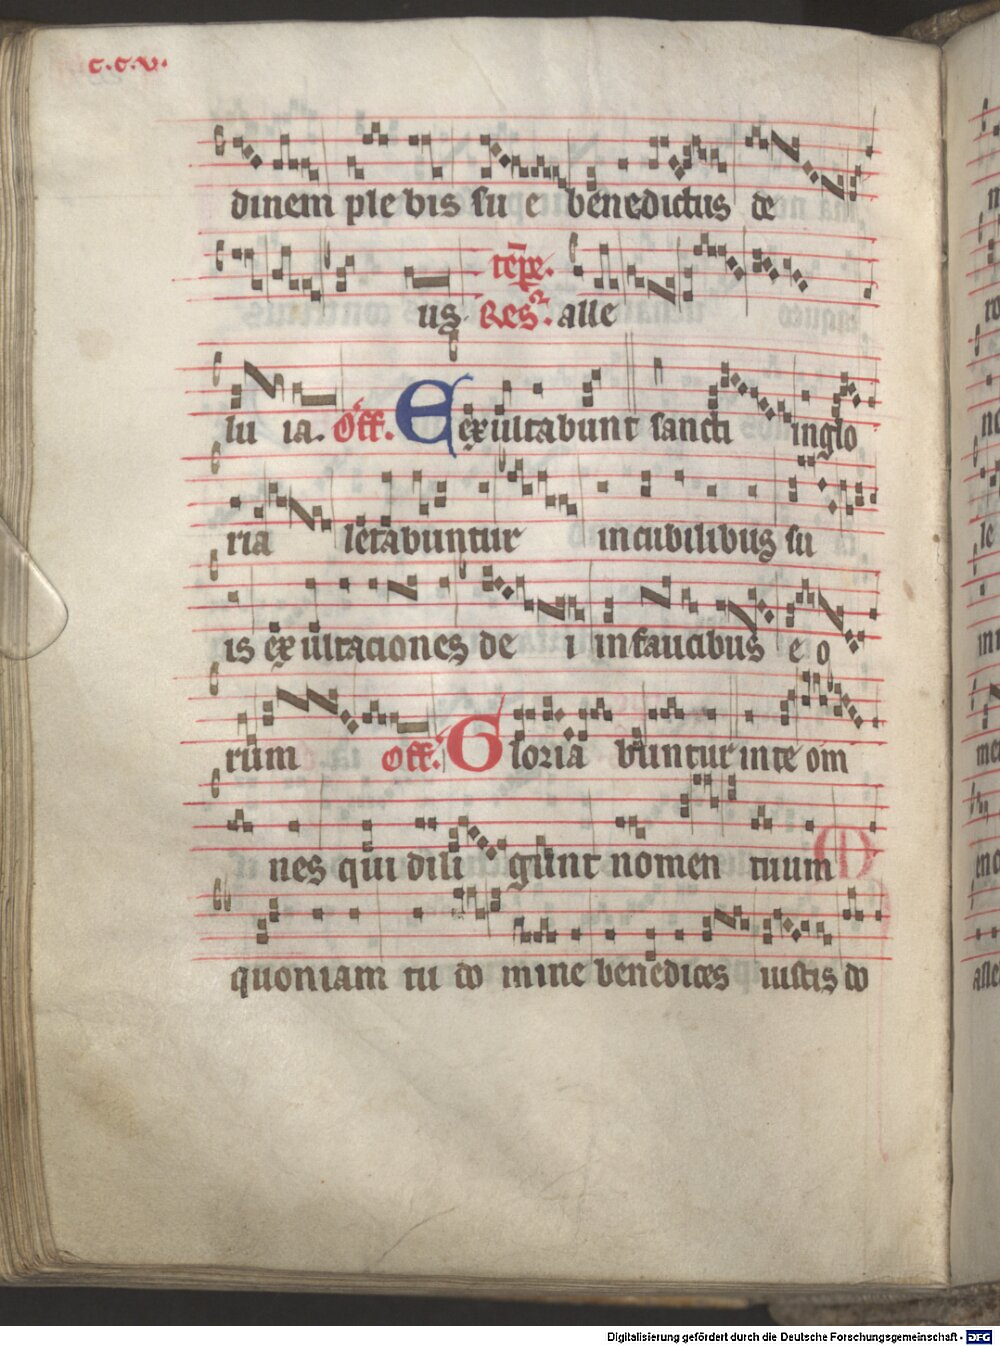 c.c.v.
dinem ple bis su e benedictus de
us Res alle
lu ia. Off. Eexultabunt sancti inglo
ria letabuntur in cubilibus su
is exultaciones de i in faucibus e o
rum Off. Gloria buntur in te om
nes qui dili gunt nomen tuum
quoniam tu do mine benedices iustis do
Digitalisierung gefördert durch die Deutsche Forschungsgemeinschaft - DFG